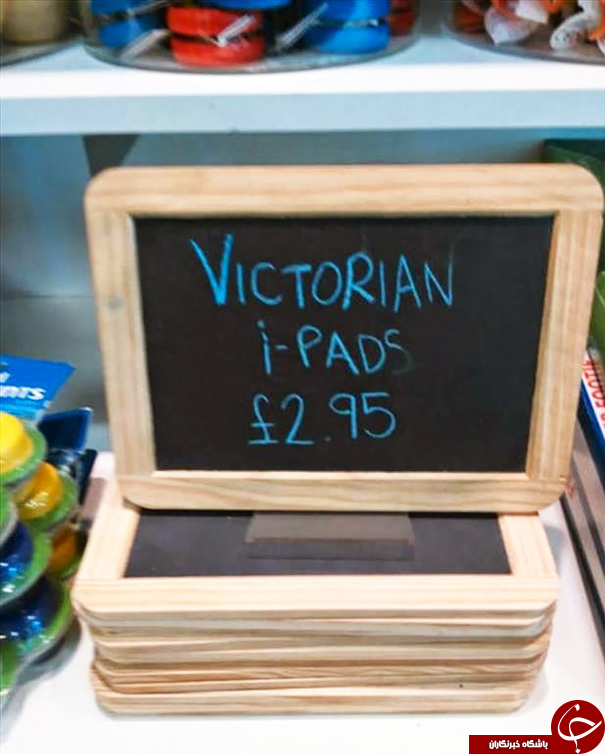 VICTORIAN
i-PADS
£2.95
باشگاه خبرنگاران